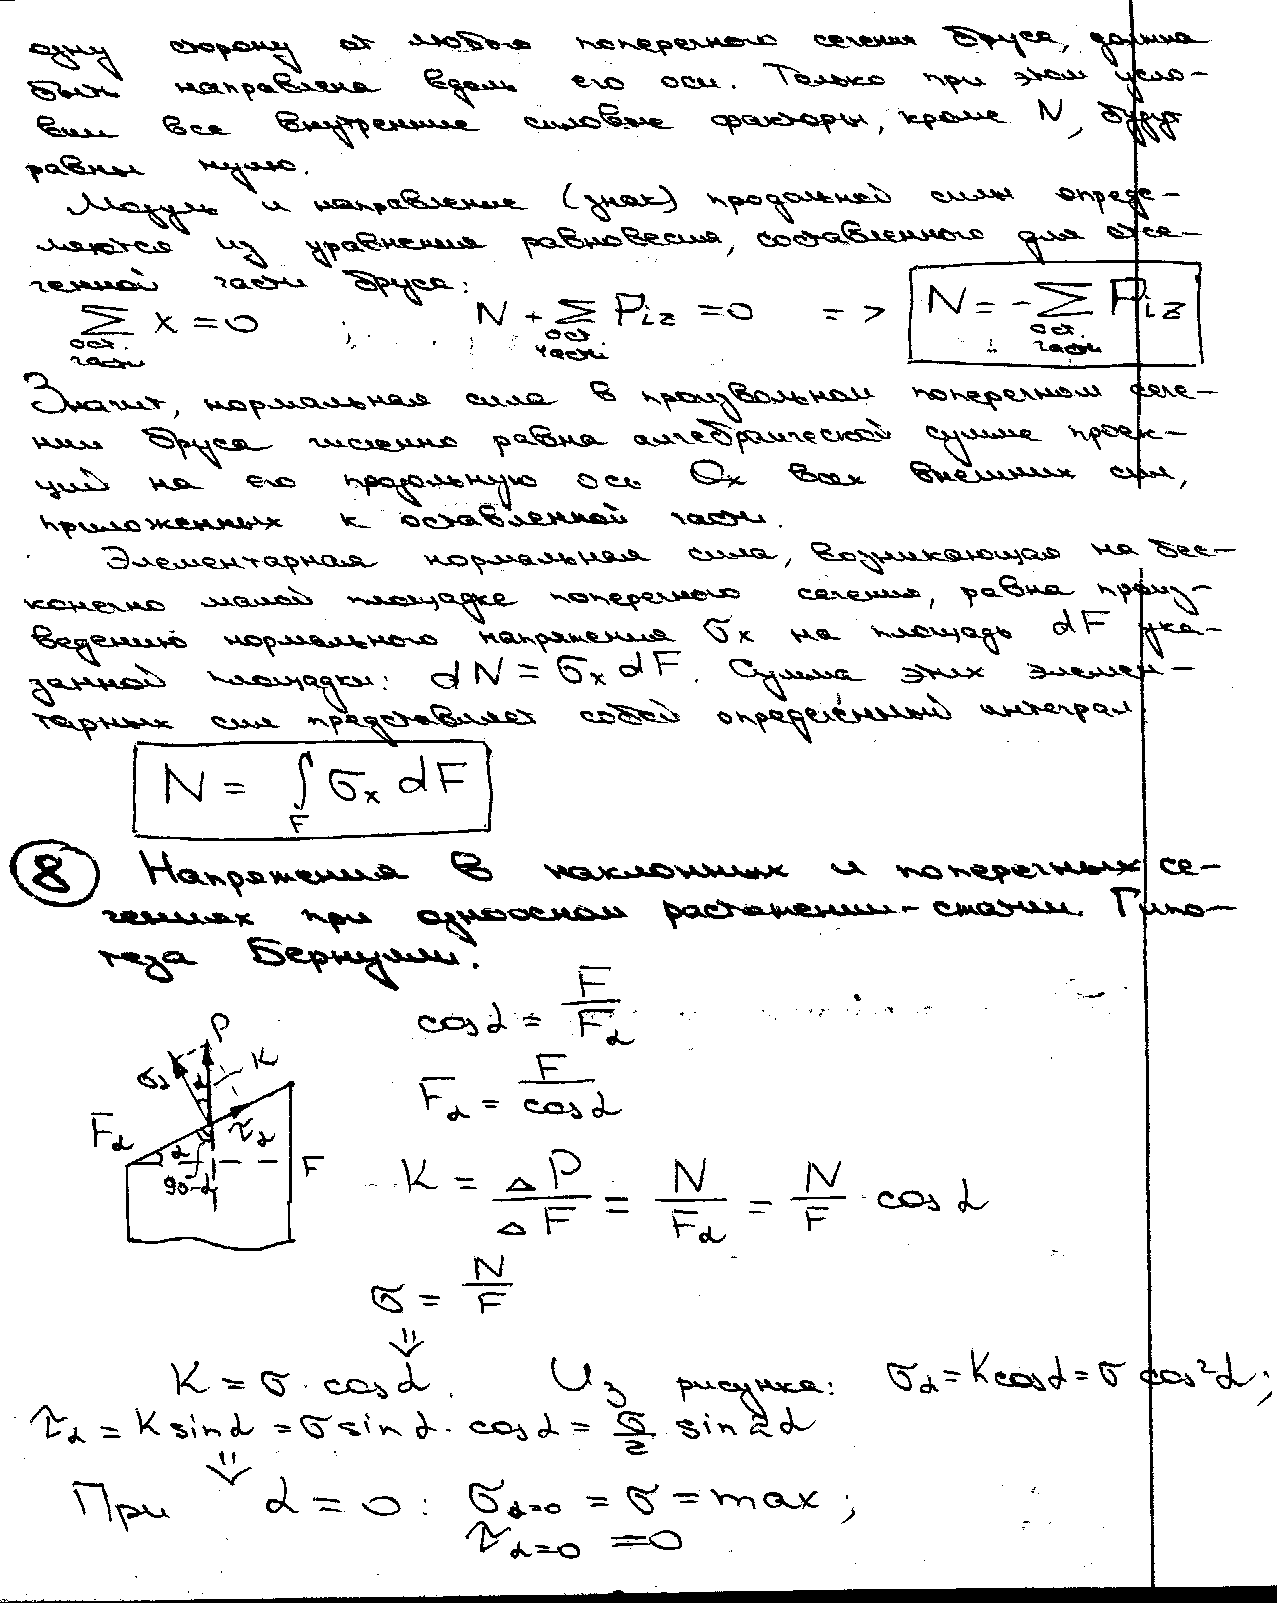 одну сторону от любого поперечного сечения бруса, должна
быть направлена вдоль его оси. Только при этом усло-
вии все внутренние силовые факторы, кроме N, будут
равны нулю.
Модуль и направление (знак) продольной силы опреде-
ляются из уравнения равновесия, составленного для отсе-
ченной части бруса:
∑ x = 0 ; N + ∑ Piz = 0 => N = - ∑ Piz
ост. части ост. части ост. части
Значит, нормальная сила в произвольном поперечном сече-
нии бруса численно равна алгебраической сумме проек-
ций на его продольную ось Ox всех внешних сил,
приложенных к оставленной части.
Элементарная нормальная сила, возникающая на бес-
конечно малой площадке поперечного сечения, равна произ-
ведению нормального напряжения σx на площадь dF ука-
занной площадки: dN = σx dF. Сумма этих элемен-
тарных сил представляет собой определённый интеграл:
N = ∫F σx dF
8 Напряжения в наклонных и поперечных се-
чениях при одноосном растяжении-сжатии. Гипо-
теза Бернулли.
cosα = F/Fα
Fα = F/cosα
P
K
σα
α
Fα
τα
α
90-α
F
K = ΔP/ΔF = N/Fα = N/F · cosα
σ = N/F
⇓
K = σ · cosα. Из рисунка: σα = K cosα = σ cos²α;
τα = K sinα = σ sinα · cosα = σ/2 sin2α
⇓
При α = 0: σα=0 = σ = max;
τα=0 = 0